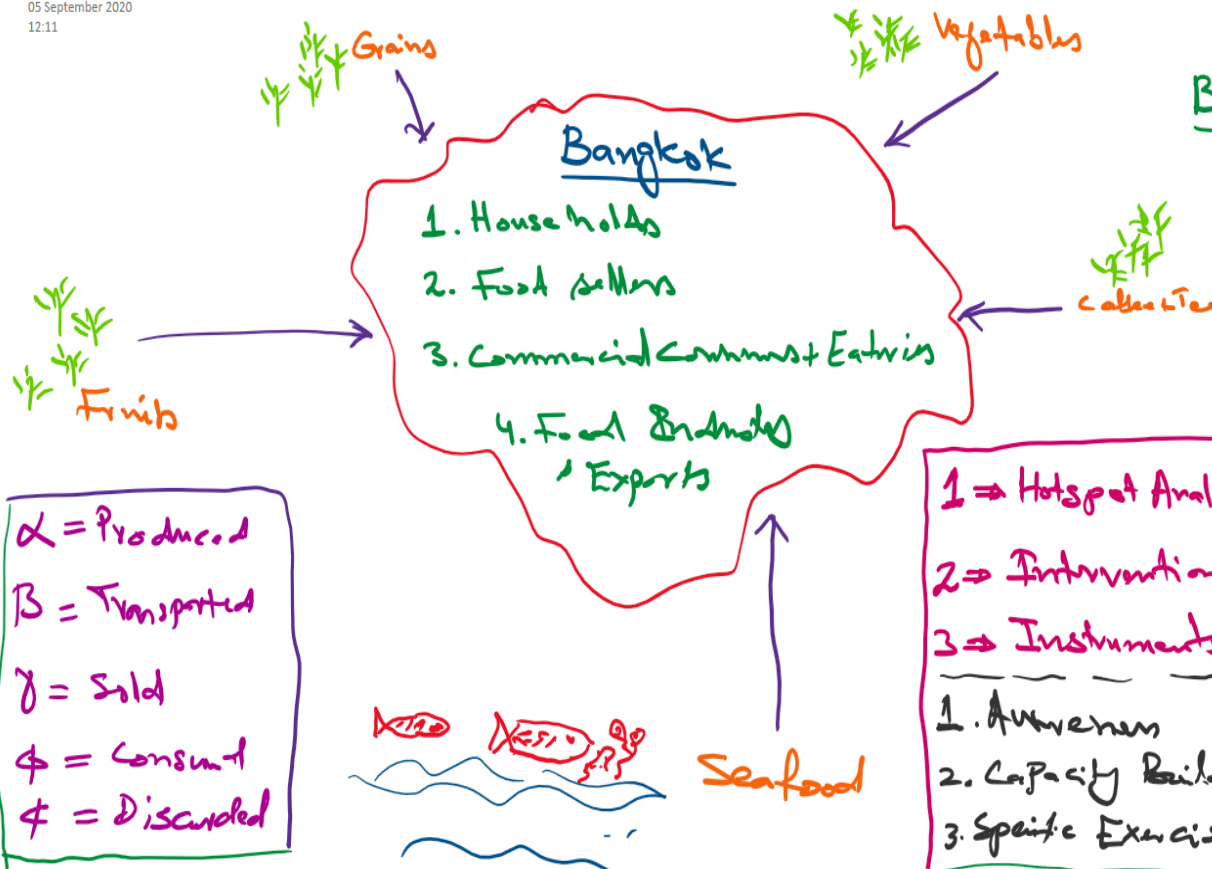 05 September 2020
12:11
Grains
Vegetables
B
Bangkok
1. Households
2. Food sellers
3. Commercial Eateries
4. Food
Exports
Fruits
α = Produced
β = Transported
γ = Sold
ϕ = Consumt
¢ = Discarded
Seafood
1 ⇒ Hotspot Anal
2 ⇒ Intervention
3 ⇒ Instruments
1. Awareness
2. Capacity Buil
3. Specific Exercis